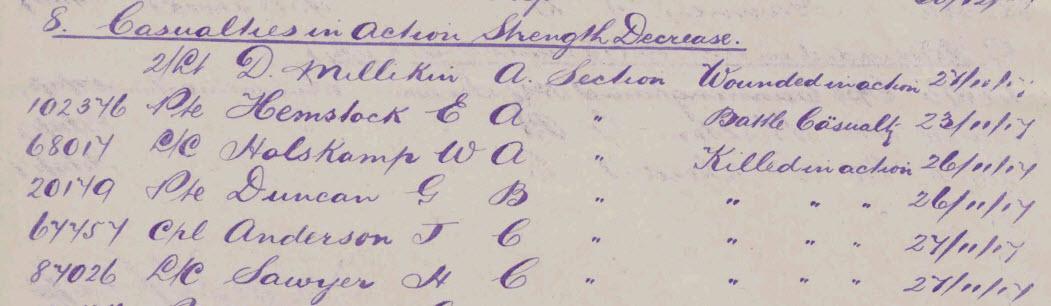 8. Casualties in action Strength Decrease.
2/Lt D. Millikin A. Section Wounded in action 27/11/17
102376 Pte Hemstock E A " Battle Casualty 23/11/17
68017 L/C Holskamp W A " Killed in action 26/11/17
20149 Pte Duncan G B " " " " 26/11/17
67457 Cpl Anderson J C " " " " 27/11/17
87026 L/C Sawyer H C " " " " 27/11/17